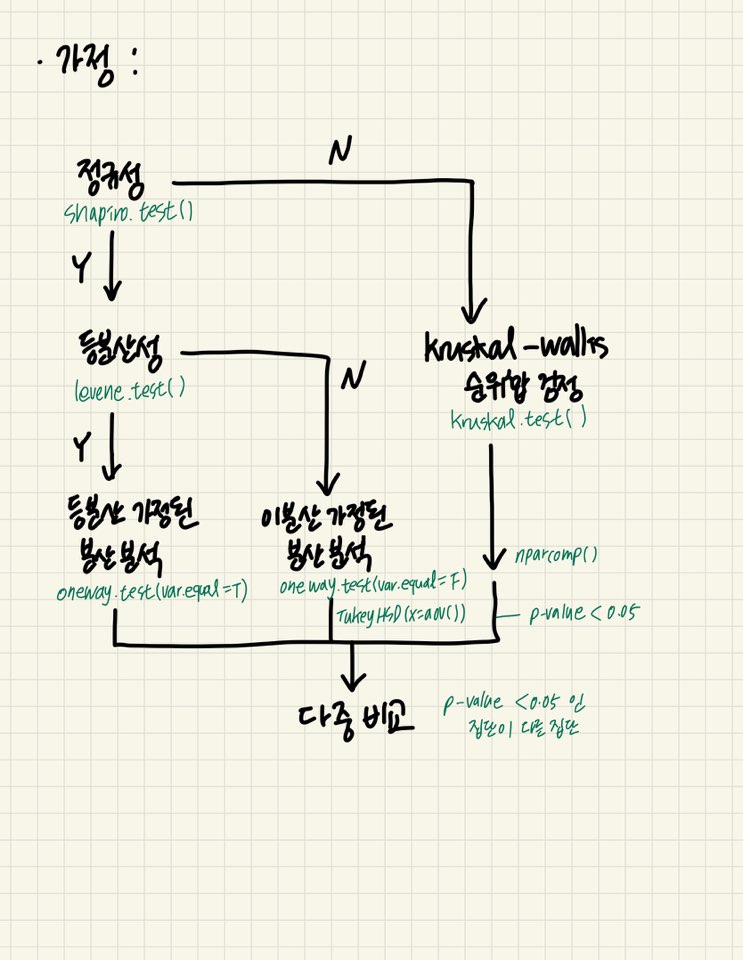 · 가정 :
N
정규성
shapiro.test()
Y
등분산성
levene.test()
N
Kruskal-wallis
순위합 검정
kruskal.test()
Y
등분산 가정된
분산 분석
oneway.test(var.equal=T)
이분산 가정된
분산 분석
oneway.test(var.equal=F)
TukeyHSD(x=aov())
nparcomp()
p-value < 0.05
다중 비교
p-value < 0.05 인
집단이 다른 집단